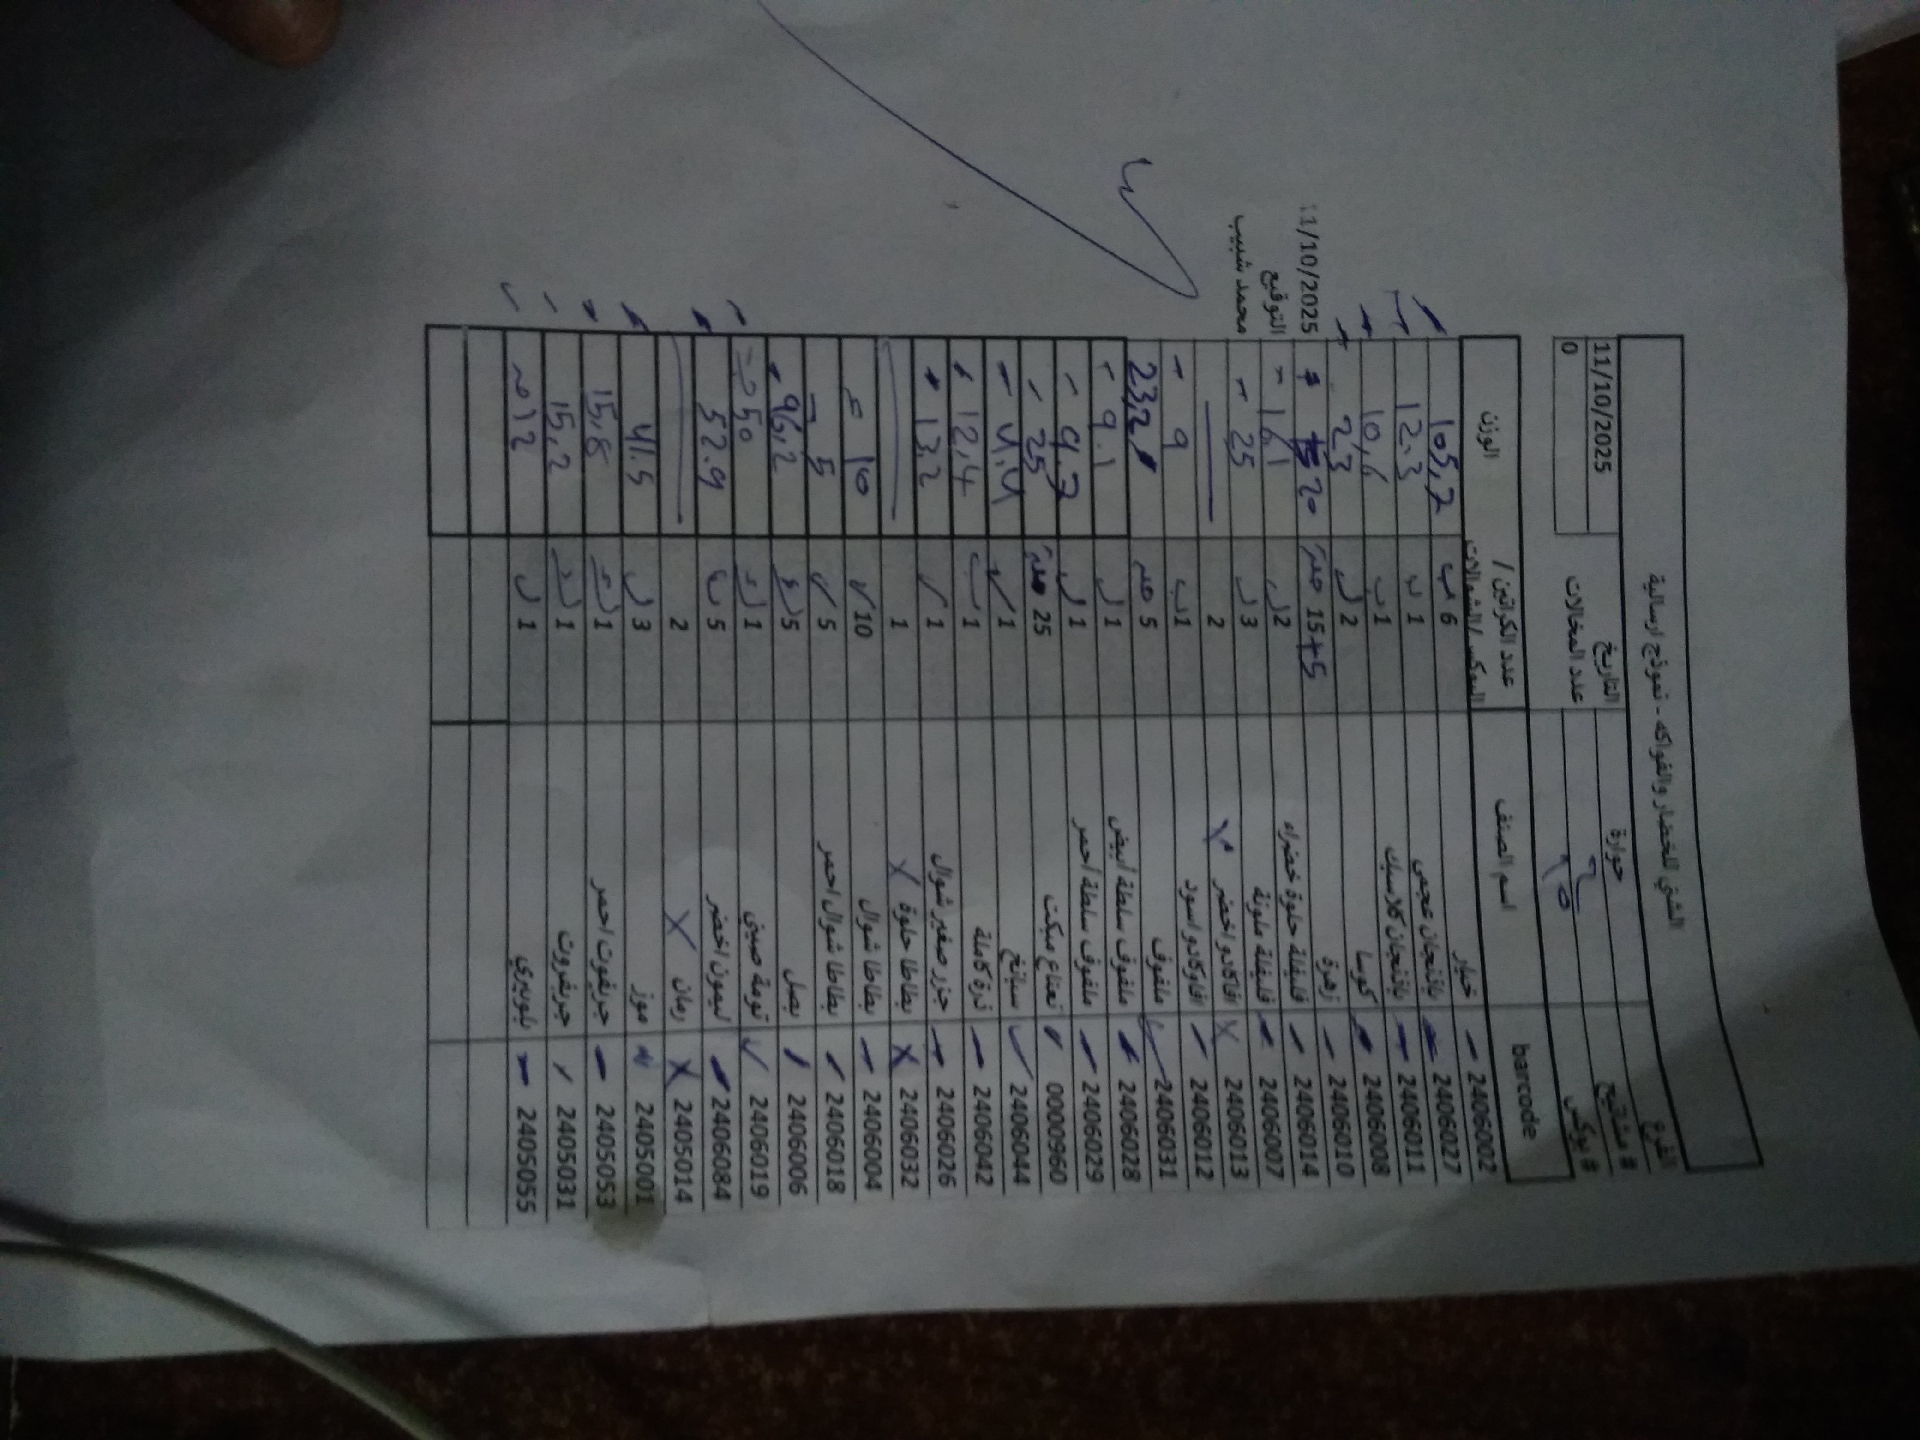 الشني للخضار والفواكه - نموذج ارسالية
الفرع حوارة التاريخ 11/10/2025
# مشاتيح عدد المخالات 0
# بوكس
barcode اسم الصنف عدد الكراتين / البوكس / الشوالات الوزن
2406002 خيار 6 ب 105,2
2406027 باذنجان عجمي 1 ب 12.3
2406011 باذنجان كلاسيك 1 ب 10,6
2406008 كوسا 2 ل 23
2406010 زهرة 15+5 20
2406014 فليفلة حلوة خضراء 2 ل 16,1
2406007 فليفلة ملونة 3 ل 25
2406013 X افاكادو اخضر X 2
2406012 افاوكادو اسود 1 ب 9
2406031 ملفوف 5 23,2
2406028 ملفوف سلطة ابيض 1 ل 9.1
2406029 ملفوف سلطة احمر 1 ل 9.2
00009960 نعناع مبكت 25 25
2406044 سبانخ 1 4.4
2406042 ذرة كاملة 1 12,4
2406026 جزر صغير شوال 1 13,2
2406032 X بطاطا حلوة X 1
2406004 بطاطا شوال 10 10
2406018 بطاطا شوال احمر 5 5
2406006 بصل 5 96,2
2406019 تومة صيني 1 50
2406084 ليمون اخضر 5 ب 52.9
2405014 X رمان X 2
2405001 موز 3 ل 41.5
2405053 جريفوت احمر 1 15,8
2405031 جريفروت 1 15,2
2405055 بلوبيري 1 ل 12
11/10/2025
التوقيع
محمد شبيب